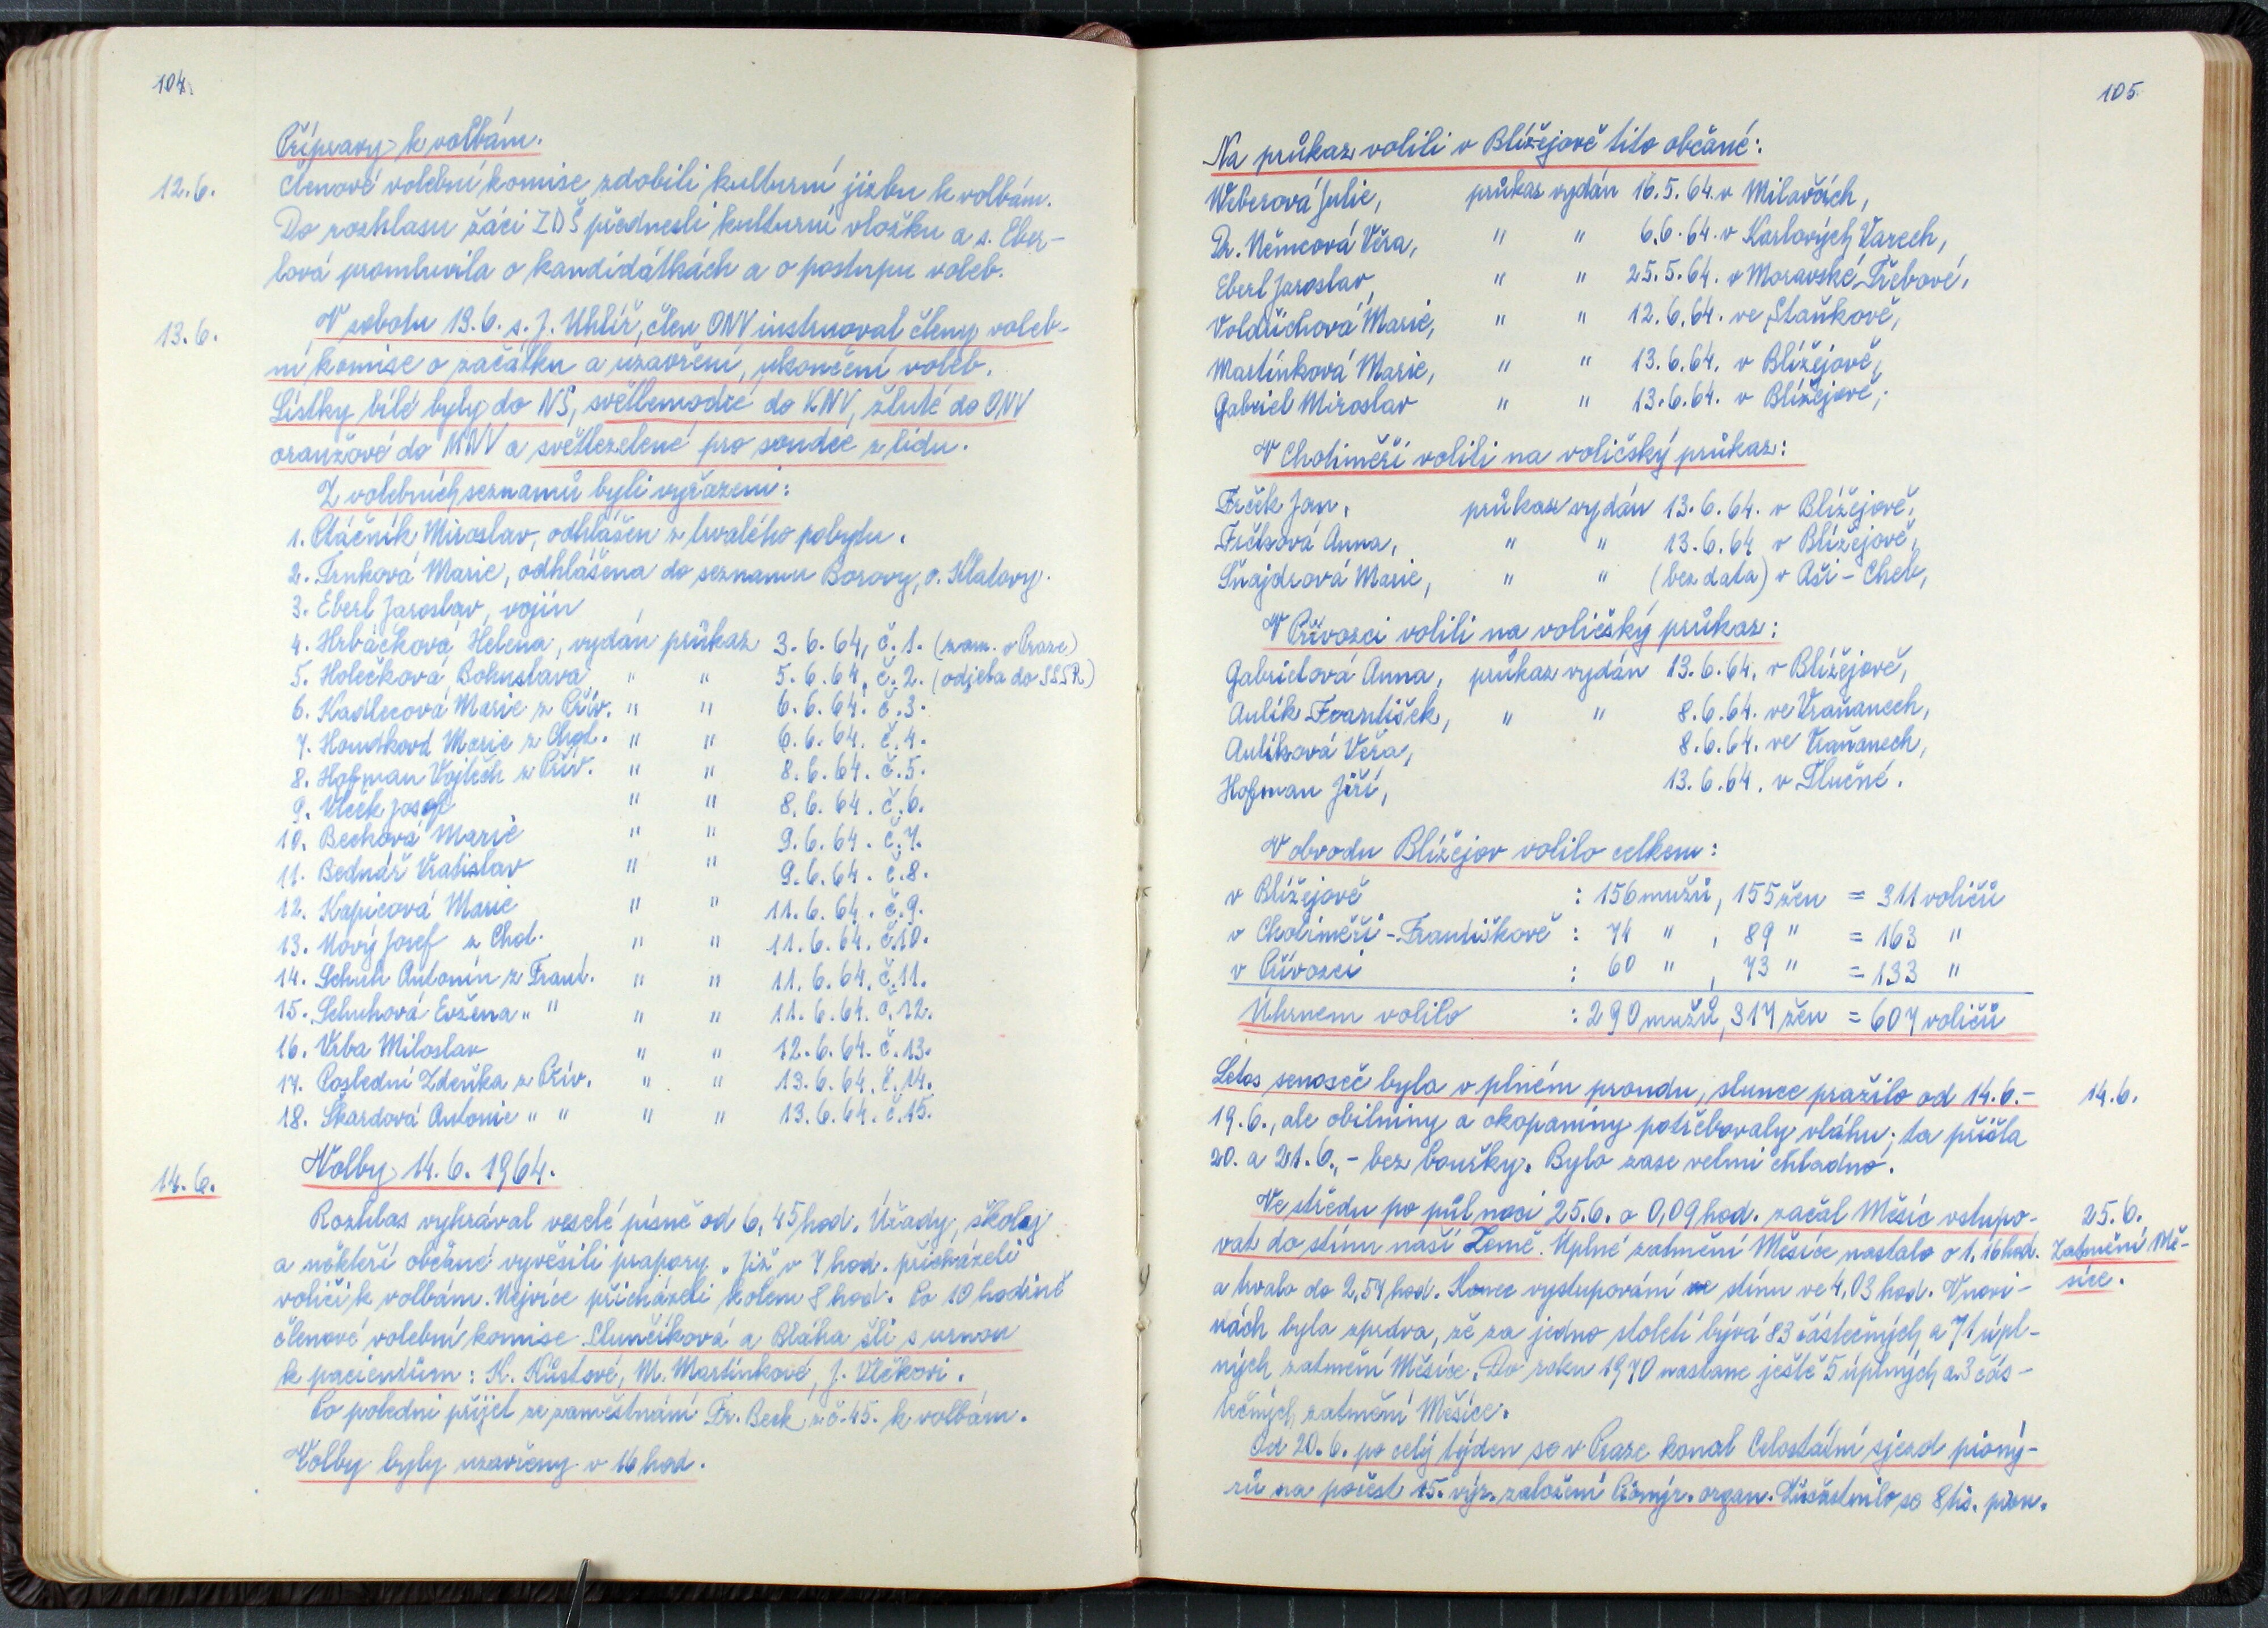 104.
Přípravy k volbám.
12.6.
Členové volební komise zdobili kulturní jizbu k volbám.
Do rozhlasu žáci ZDŠ přednesli kulturní vložku a s. Eber-
lová promluvila o kandidátkách a o postupu voleb.
13.6.
V sobotu 13.6. s. J. Uhlíř, člen ONV, instruoval členy voleb-
ní komise o začátku a uzavření, ukončení voleb.
Lístky bílé byly do NS, světlemodré do KNV, žluté do ONV
oranžové do MNV a světlezelené pro soudce z lidu.
Z volebních seznamů byli vyřazeni:
1. Ptáčník Miroslav, odhlášen z trvalého pobytu.
2. Trnková Marie, odhlášena do seznamu Borovy, o. Klatovy.
3. Eberl Jaroslav, vojín
4. Hrbáčková Helena, vydán průkaz 3.6.64, č.1. (zam. v Praze)
5. Holečková Bohuslava " " 5.6.64, č.2. (odjela do SSSR)
6. Kadlecová Marie z Přív. " " 6.6.64. č.3.
7. Marie z Chol. " " 6.6.64. č.4.
8. Hofman Vojtěch z Přív. " " 8.6.64. č.5.
9. Vlček Josef " " 8.6.64. č.6.
10. Becková Marie " " 9.6.64. č.7.
11. Bednář Vratislav " " 9.6.64. č.8.
12. Kapicová Marie " " 11.6.64. č.9.
13. Nový Josef z Chol. " " 11.6.64. č.10.
14. Schuh Antonín z Frant. " " 11.6.64. č.11.
15. Schuhová Evžena " " " " 11.6.64. č.12.
16. Vrba Miloslav " " 12.6.64. č.13.
17. Poslední Zdeňka z Přív. " " 13.6.64. č.14.
18. Škardová Antonie " " " " 13.6.64. č.15.
14.6.
Volby 14.6.1964.
Rozhlas vyhrával veselé písně od 6,45 hod. Úřady, školy
a někteří občané vyvěsili prapory. Již v 7 hod. přicházeli
voliči k volbám. Nejvíce přicházeli kolem 8 hod. Po 10 hodině
členové volební komise Slunčíková a Bláha šli s urnou
k pacientům: K. Küstové, M. Martinkové, J. Vlčkovi.
Po poledni přijel ze zaměstnání Fr. Beck z č. 45. k volbám.
Volby byly uzavřeny v 16 hod.
105.
Na průkaz volili v Blížejově tito občané:
Weberová Julie, průkaz vydán 16.5.64. v Milavčích,
Dr. Němcová Věra, " " 6.6.64. v Karlových Varech,
Eberl Jaroslav, " " 25.5.64. v Moravské Třebové,
Volduchová Marie, " " 12.6.64. ve Staňkově,
Martínková Marie, " " 13.6.64. v Blížejově,
Gabriel Miroslav " " 13.6.64. v Blížejově;
V Cholměři volili na voličský průkaz:
Frček Jan, průkaz vydán 13.6.64. v Blížejově,
Frčková Anna, " " 13.6.64 v Blížejově,
Šnajdrová Marie, " " (bez data) v Aši - Cheb,
V Přívozci volili na voličský průkaz:
Gabrielová Anna, průkaz vydán 13.6.64. v Blížejově,
Aulík František, " " 8.6.64. ve Vraňanech,
Aulíková Věra, 8.6.64. ve Vraňanech,
Hofman Jiří, 13.6.64. v Tlučné.
V obvodu Blížejov volilo celkem:
v Blížejově : 156 mužů, 155 žen = 311 voličů
v Cholměři - Františkově : 74 " , 89 " = 163 "
v Přívozci : 60 " , 73 " = 133 "
Úhrnem volilo : 290 mužů, 317 žen = 607 voličů
Letos senoseč byla v plném proudu, slunce pražilo od 14.6.- 14.6.
19.6., ale obilniny a okopaniny potřebovaly vláhu; ta přišla
20. a 21.6., - bez bouřky. Bylo zase velmi chladno.
Ve středu po půl noci 25.6. o 0,09 hod. začal Měsíc vstupo- 25.6.
vat do stínu naší Země. Úplné zatmění Měsíce nastalo o 1,16 hod. Zatmění Mě-
a trvalo do 2,54 hod. Konec vystupování ze stínu ve 4,03 hod. V novi- síce.
nách byla zpráva, že za jedno století bývá 83 částečných a 71 úpl-
ných zatmění Měsíce. Do roku 1970 nastane ještě 5 úplných a 3 čás-
tečných zatmění Měsíce.
Od 20.6. po celý týden se v Praze konal Celostátní sjezd pioný-
rů na počest 15. výr. založení Pionýr. organ. Zúčastnilo se 8 tis. pion.